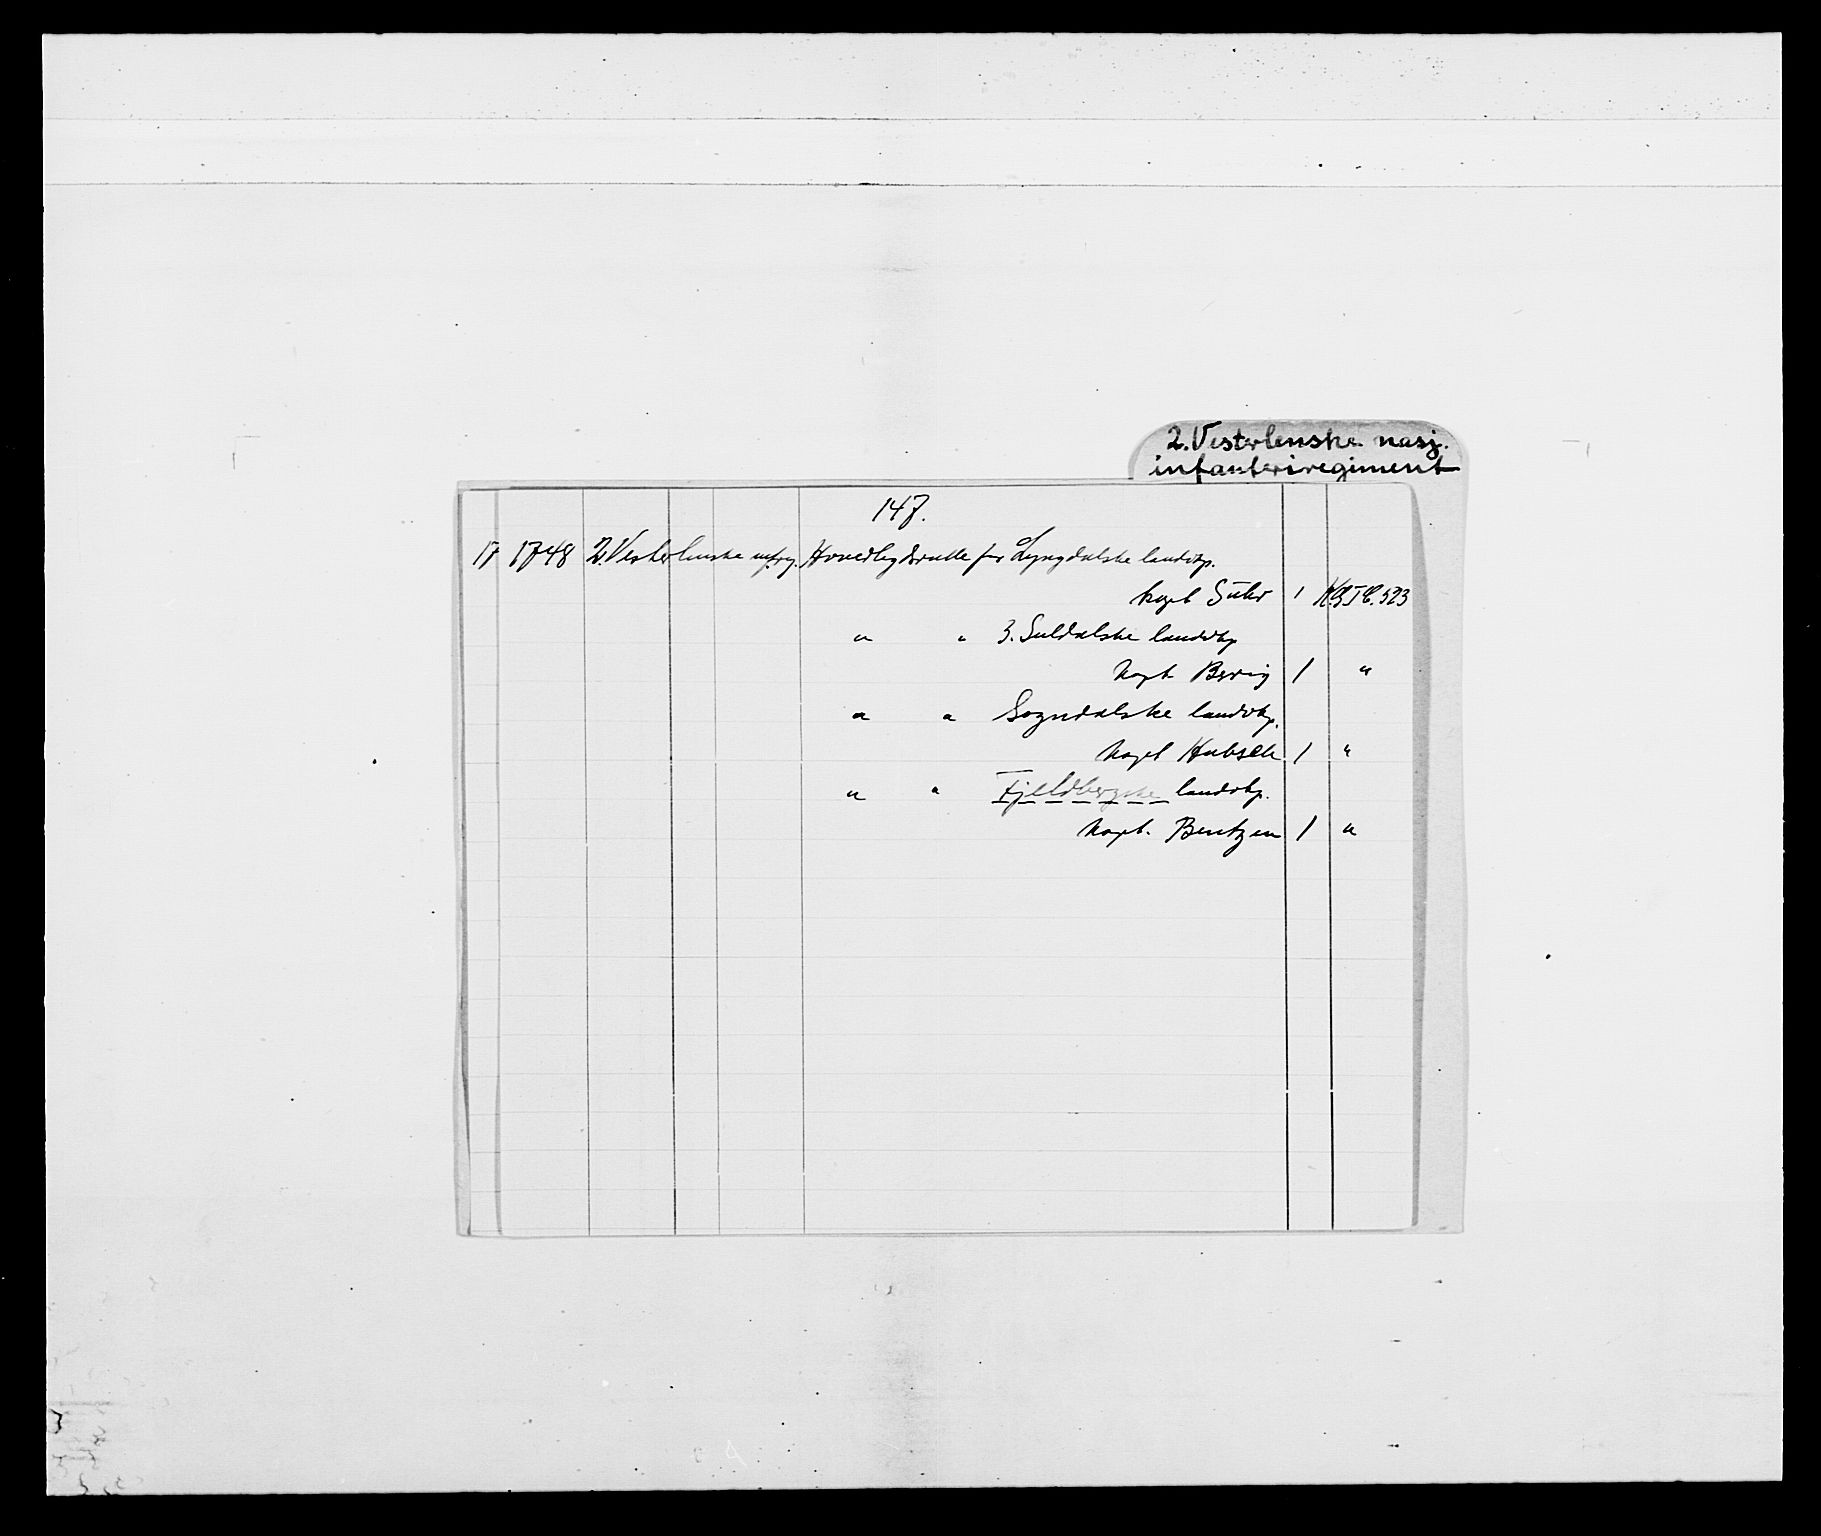 2. Vesterlenske nasj.
infanteriregiment
147.
17 1748 2. Vesterlenske inf.rg. Hovedlegdsrulle for Lyngdalske landvkp.
kapt Suhr 1 523
" " 3. Suldalske landvkp
kapt Bering 1 "
" " Sogndalske landvkp.
kapt Hubsch 1 "
" " Fjeldbergske landvkp.
kapt. Bentzen 1 "